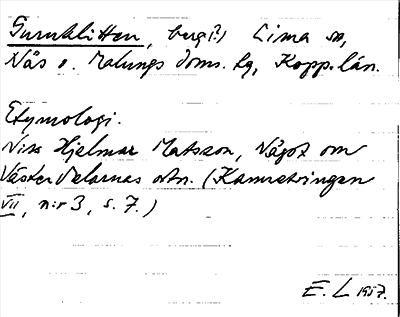 Guruklitten, berg(?) Lima sn,
Nås o. Malungs doms. hg, Kopp. län.
Etymologi.
Nils Hjelmar Matsson, Något om
Västerdalarnas ortn. (Kamratringen
VII, n:r 3, s. 7.)
E. L 1957.